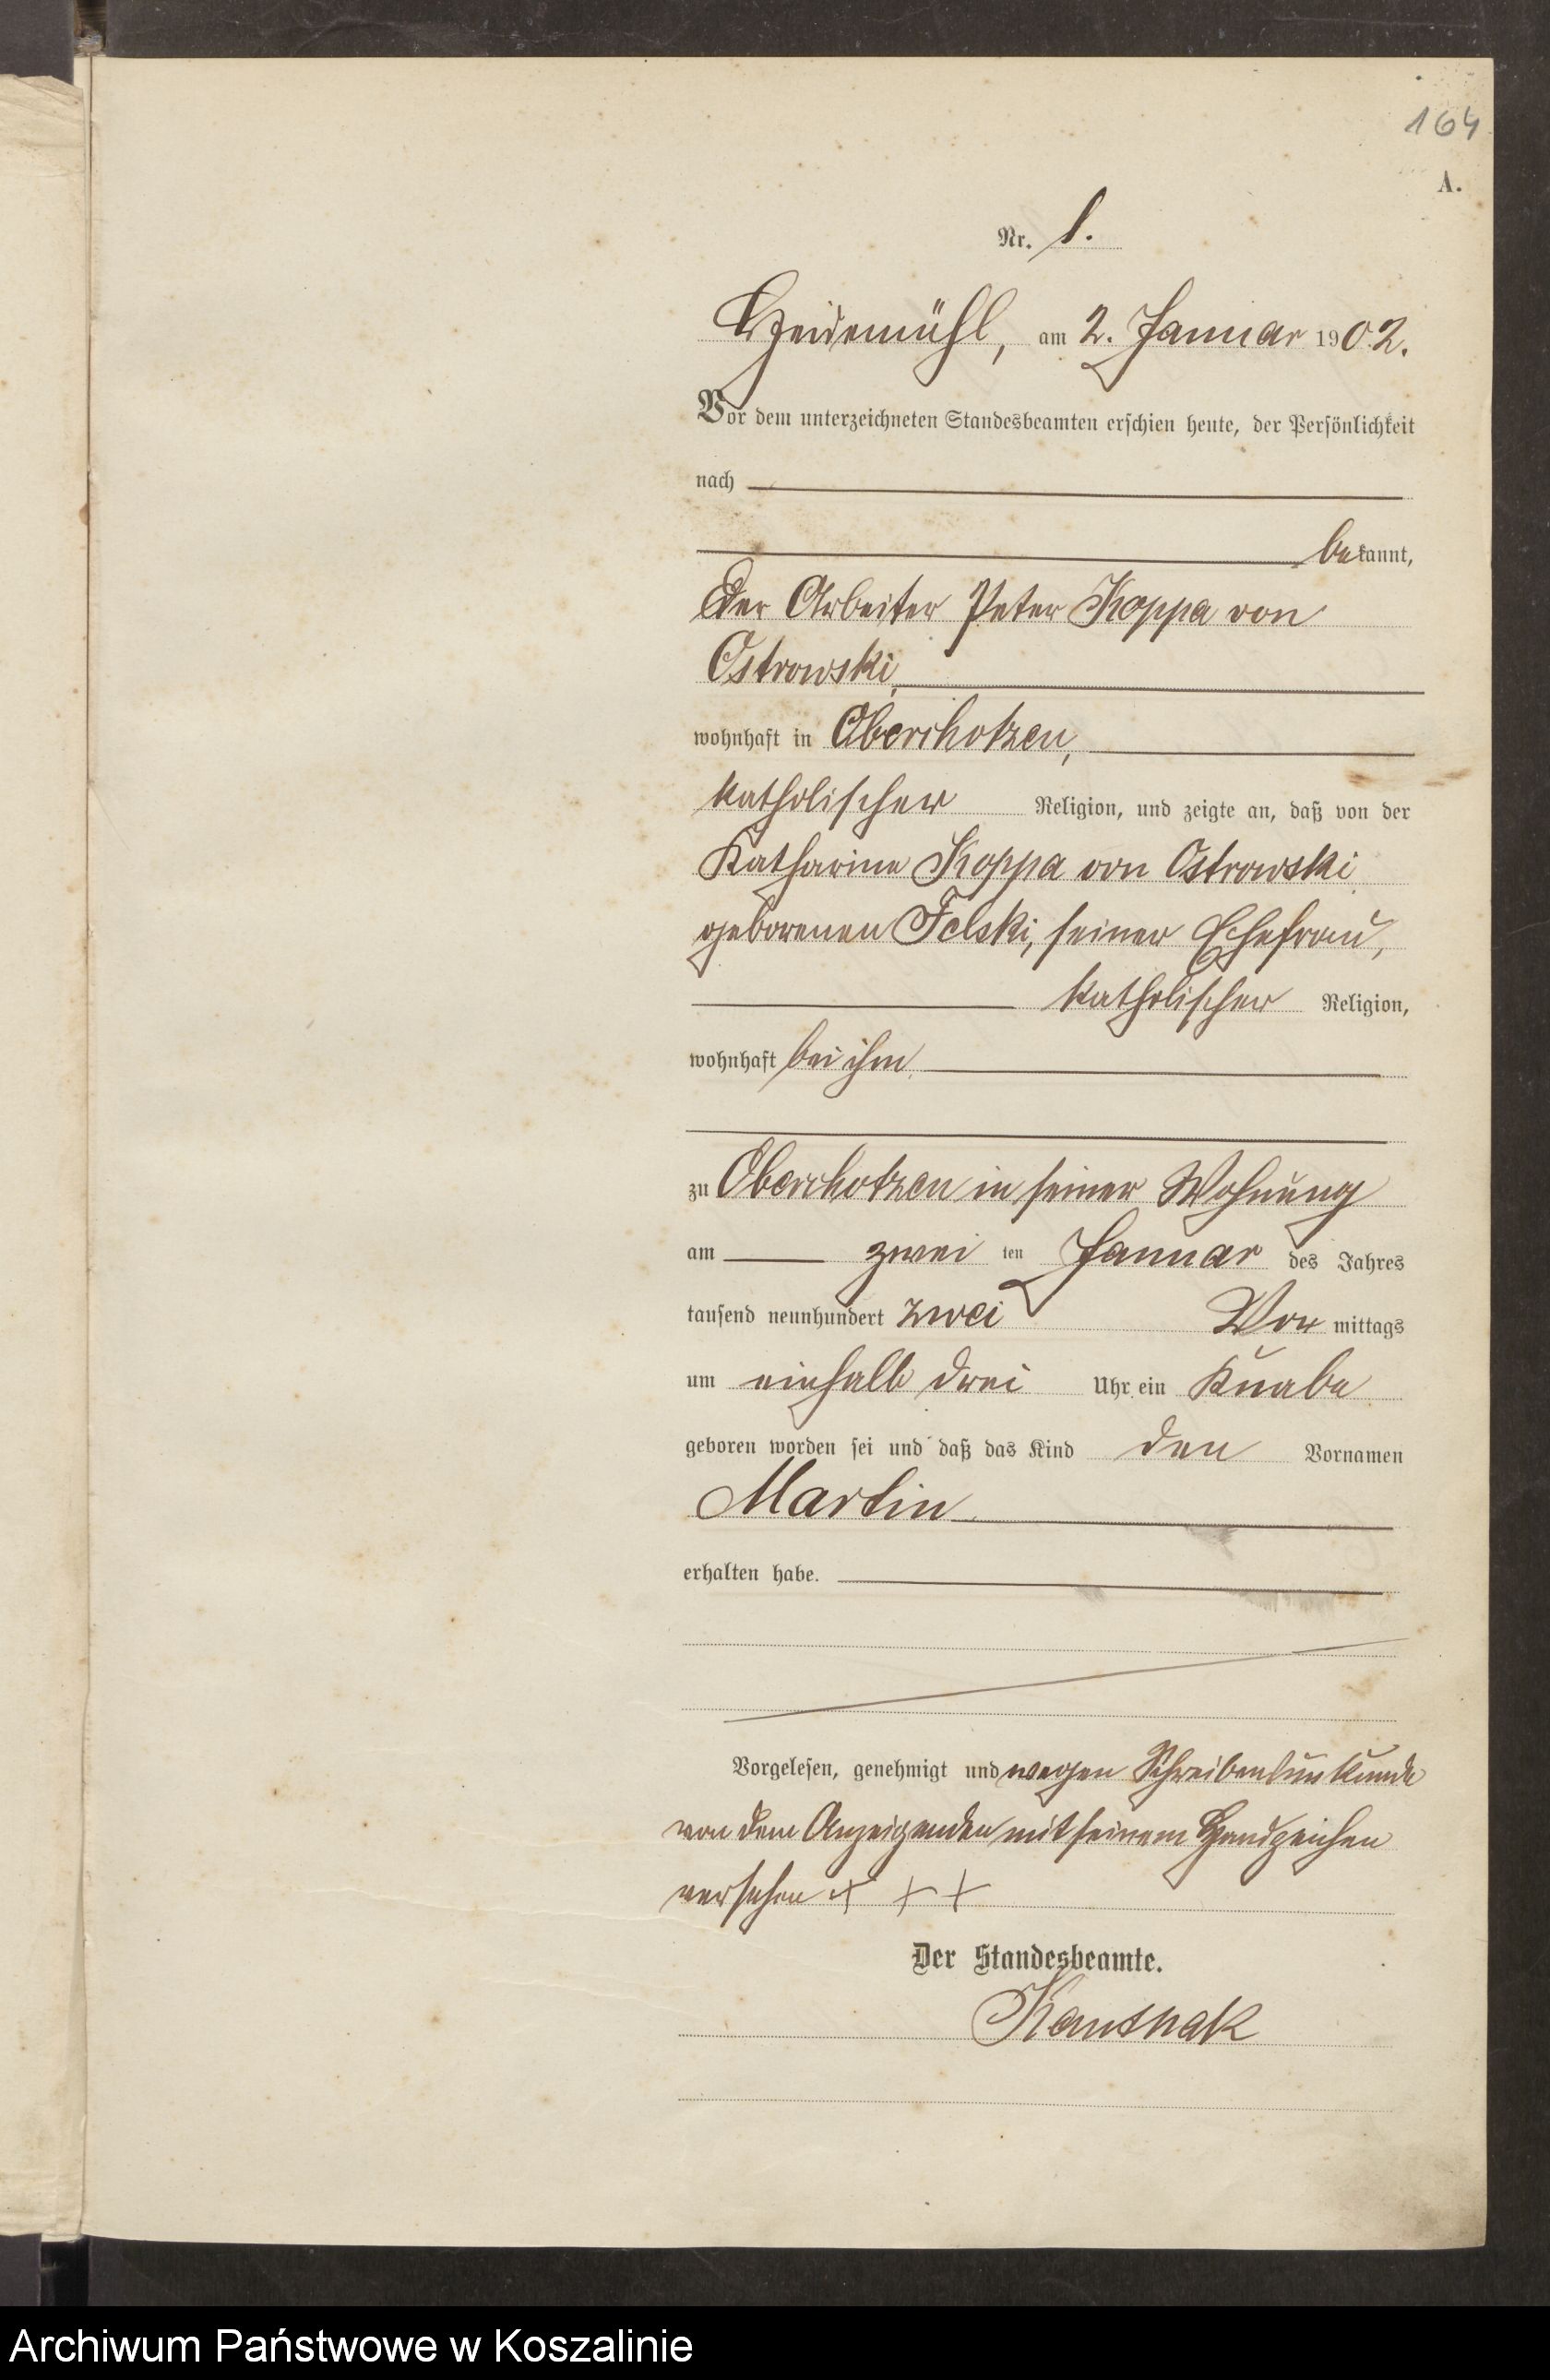 164
A.
Nr. 1.
Heidemühl, am 2. Januar 1902.
Vor dem unterzeichneten Standesbeamten erschien heute, der Persönlichkeit
nach
bekannt,
der Arbeiter Peter Koppa von
Ostrowski,
wohnhaft in Oberchotzen,
katholischer Religion, und zeigte an, daß von der
Katharina Koppa von Ostrowski
geborenen Felski, seiner Ehefrau,
katholischer Religion,
wohnhaft bei ihm,
zu Oberchotzen in seiner Wohnung
am zwei ten Januar des Jahres
tausend neunhundert zwei Vor mittags
um einhalb drei Uhr ein Knabe
geboren worden sei und daß das Kind den Vornamen
Martin
erhalten habe.
Vorgelesen, genehmigt und wegen Schreibensunkunde
von dem Anzeigenden mit seinem Handzeichen
versehen + + +
Der Standesbeamte.
Archiwum Państwowe w Koszalinie